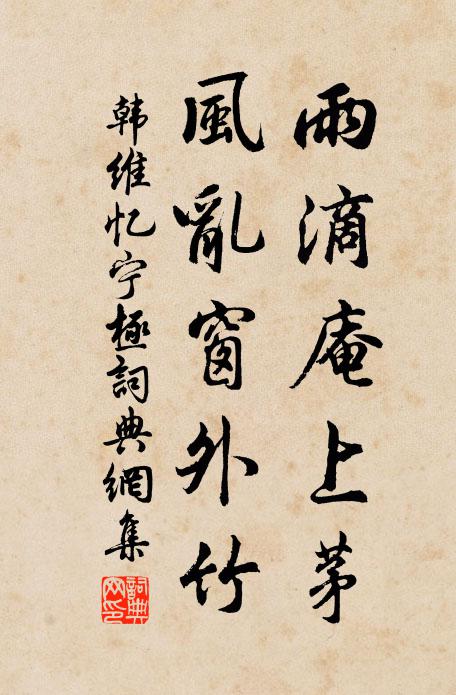 雨滴庵上茅
風亂窗外竹
韩維忆宁極詞典網集
詞典网印